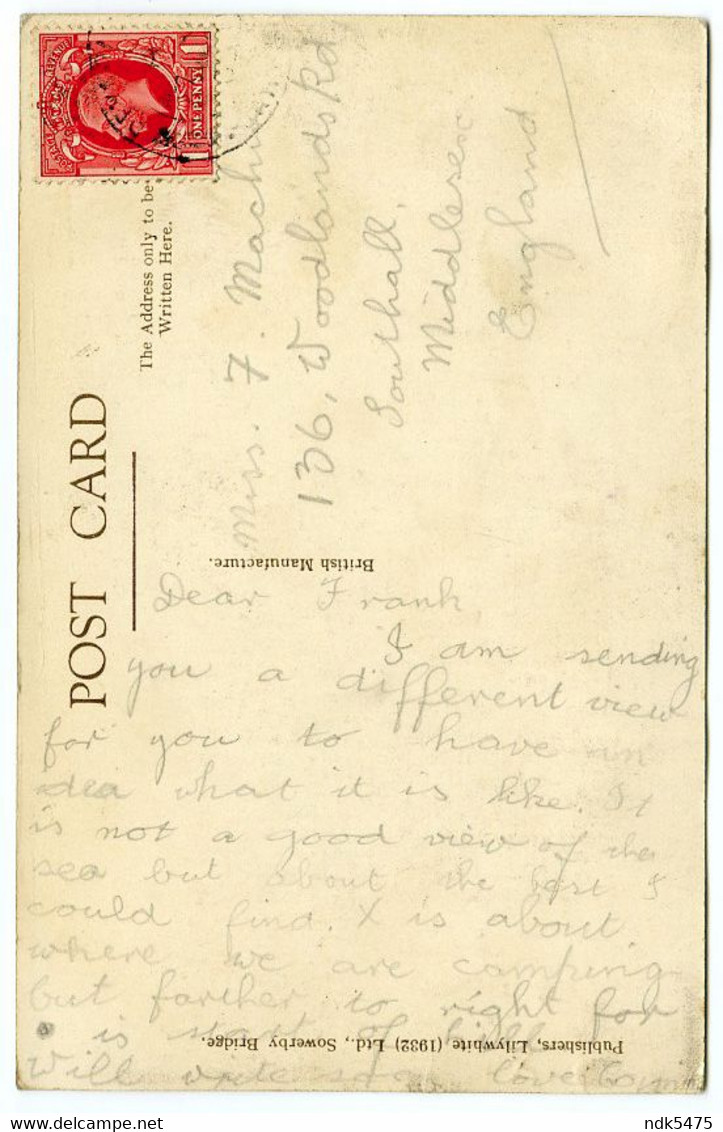 POSTAGE REVENUE
ONE PENNY
POST CARD
The Address only to be
Written Here.
Miss. F. Machin
136, Woodlands Rd
Southall,
Middlesex
England
British Manufacture.
Dear Frank,
I am sending
you a different view
for you to have an
idea what it is like. It
is not a good view of the
sea but about the best I
could find. X is about
where we are camping
but farther to right for
is start of hill
Will write soon love
Publishers, Lilywhite (1932) Ltd., Sowerby Bridge.
ndk5475